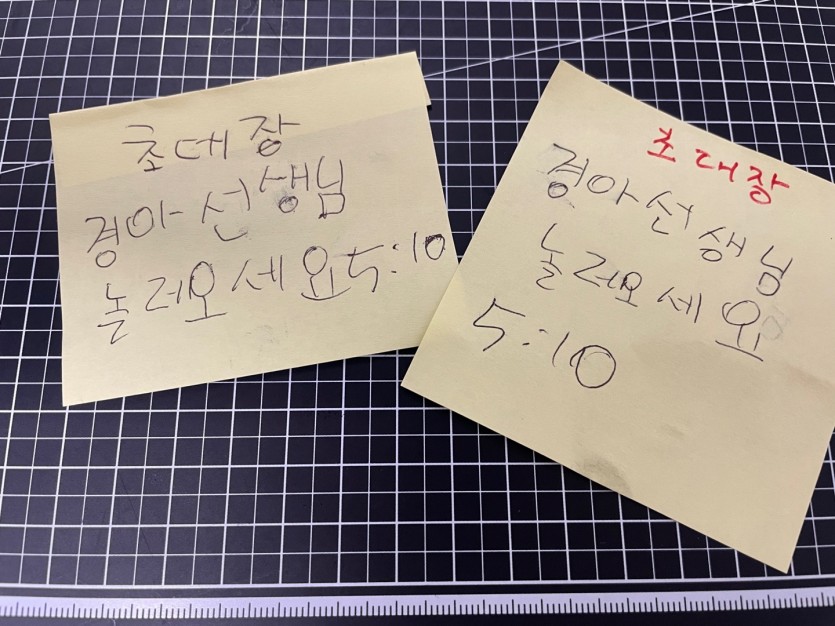 초데장
경아 선생님
놀러오세요 5:10
초대장
경아 선생님
놀러오세요
5:10